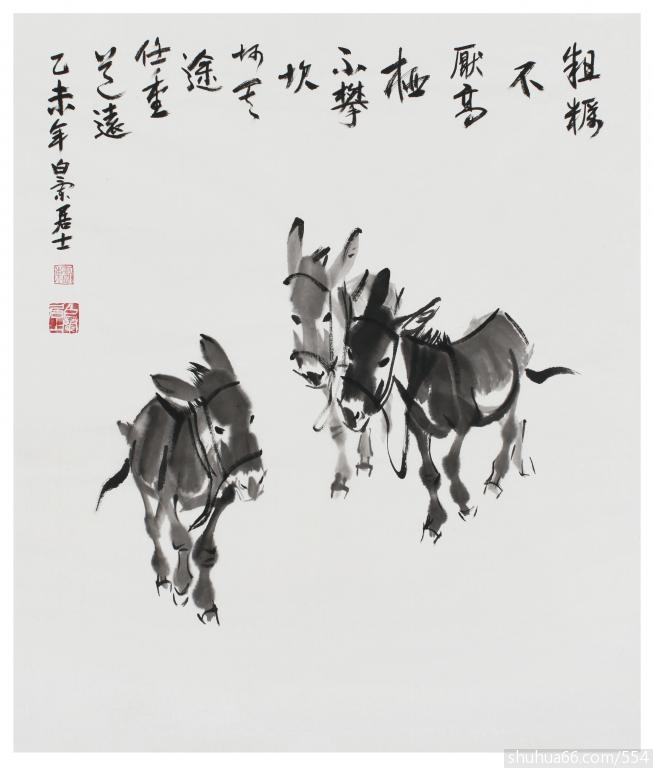 粗糲
不
厭高
枝
不攀
坎
坷其
途
任重
道遠
乙未年白居士
shuhua66.com/554